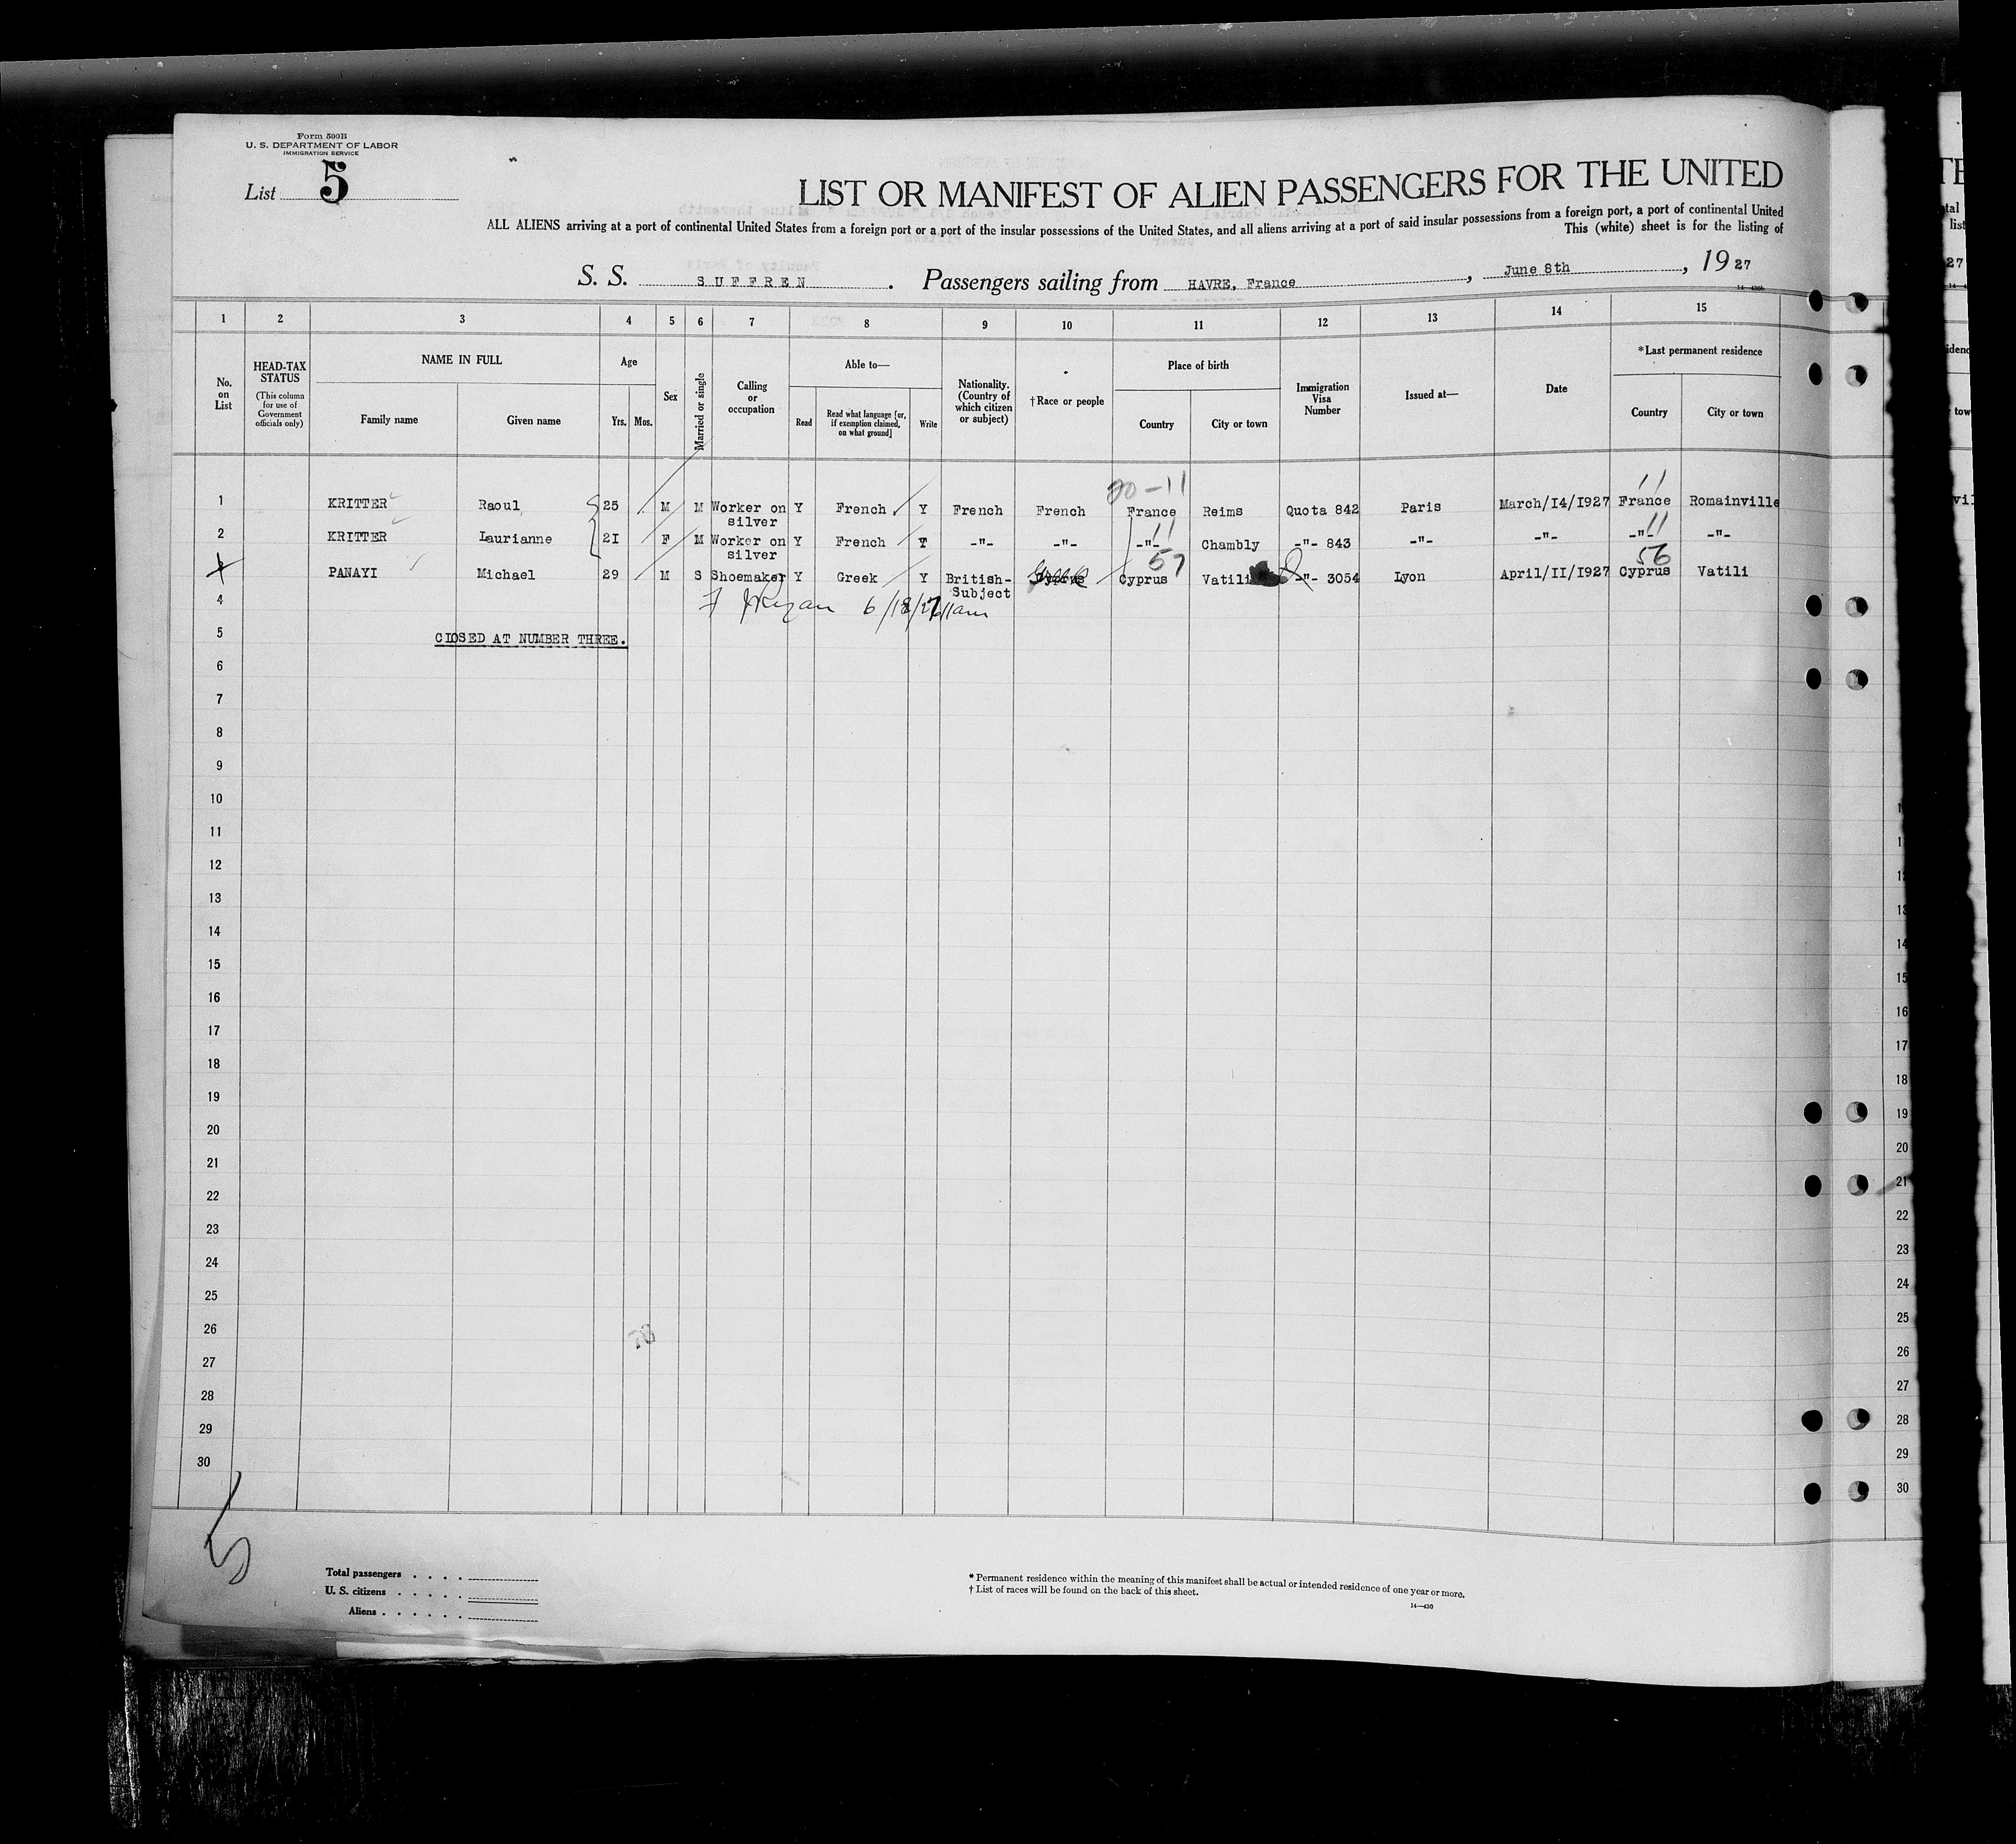 Form 500B
U. S. DEPARTMENT OF LABOR
IMMIGRATION SERVICE
List 5
LIST OR MANIFEST OF ALIEN PASSENGERS FOR THE UNITED
ALL ALIENS arriving at a port of continental United States from a foreign port or a port of the insular possessions of the United States, and all aliens arriving at a port of said insular possessions from a foreign port, a port of continental United
This (white) sheet is for the listing of
S. S. SUFFREN. Passengers sailing from HAVRE, France, June 8th, 1927
1 2 3 4 5 6 7 8 9 10 11 12 13 14 15
No. on List
HEAD-TAX STATUS (This column for use of Government officials only)
NAME IN FULL
Family name Given name
Age
Yrs. Mos.
Sex
Married or single
Calling or occupation
Able to—
Read
Read what language [or, if exemption claimed, on what ground]
Write
Nationality. (Country of which citizen or subject)
†Race or people
Place of birth
Country City or town
Immigration Visa Number
Issued at—
Date
*Last permanent residence
Country City or town
20-11 11
1 KRITTER Raoul 25 M M Worker on silver Y French Y French French France Reims Quota 842 Paris March/I4/I927 France Romainville
11 11
2 KRITTER Laurianne 2I F M Worker on silver Y French Y -"- -"- -"- Chambly -"- 843 -"- -"- -"- -"-
57 56
3 PANAYI Michael 29 M S Shoemaker Y Greek Y British-Subject Greek Cyprus Vatili -"- 3054 Lyon April/II/I927 Cyprus Vatili
4 6/18/27 11am
5 ClOSED AT NUMBER THREE.
6
7
8
9
10
11
12
13
14
15
16
17
18
19
20
21
22
23
24
25
26
27
28
29
30
5
Total passengers . . . .
U. S. citizens . . . . .
Aliens . . . . . .
* Permanent residence within the meaning of this manifest shall be actual or intended residence of one year or more.
† List of races will be found on the back of this sheet.
14—430